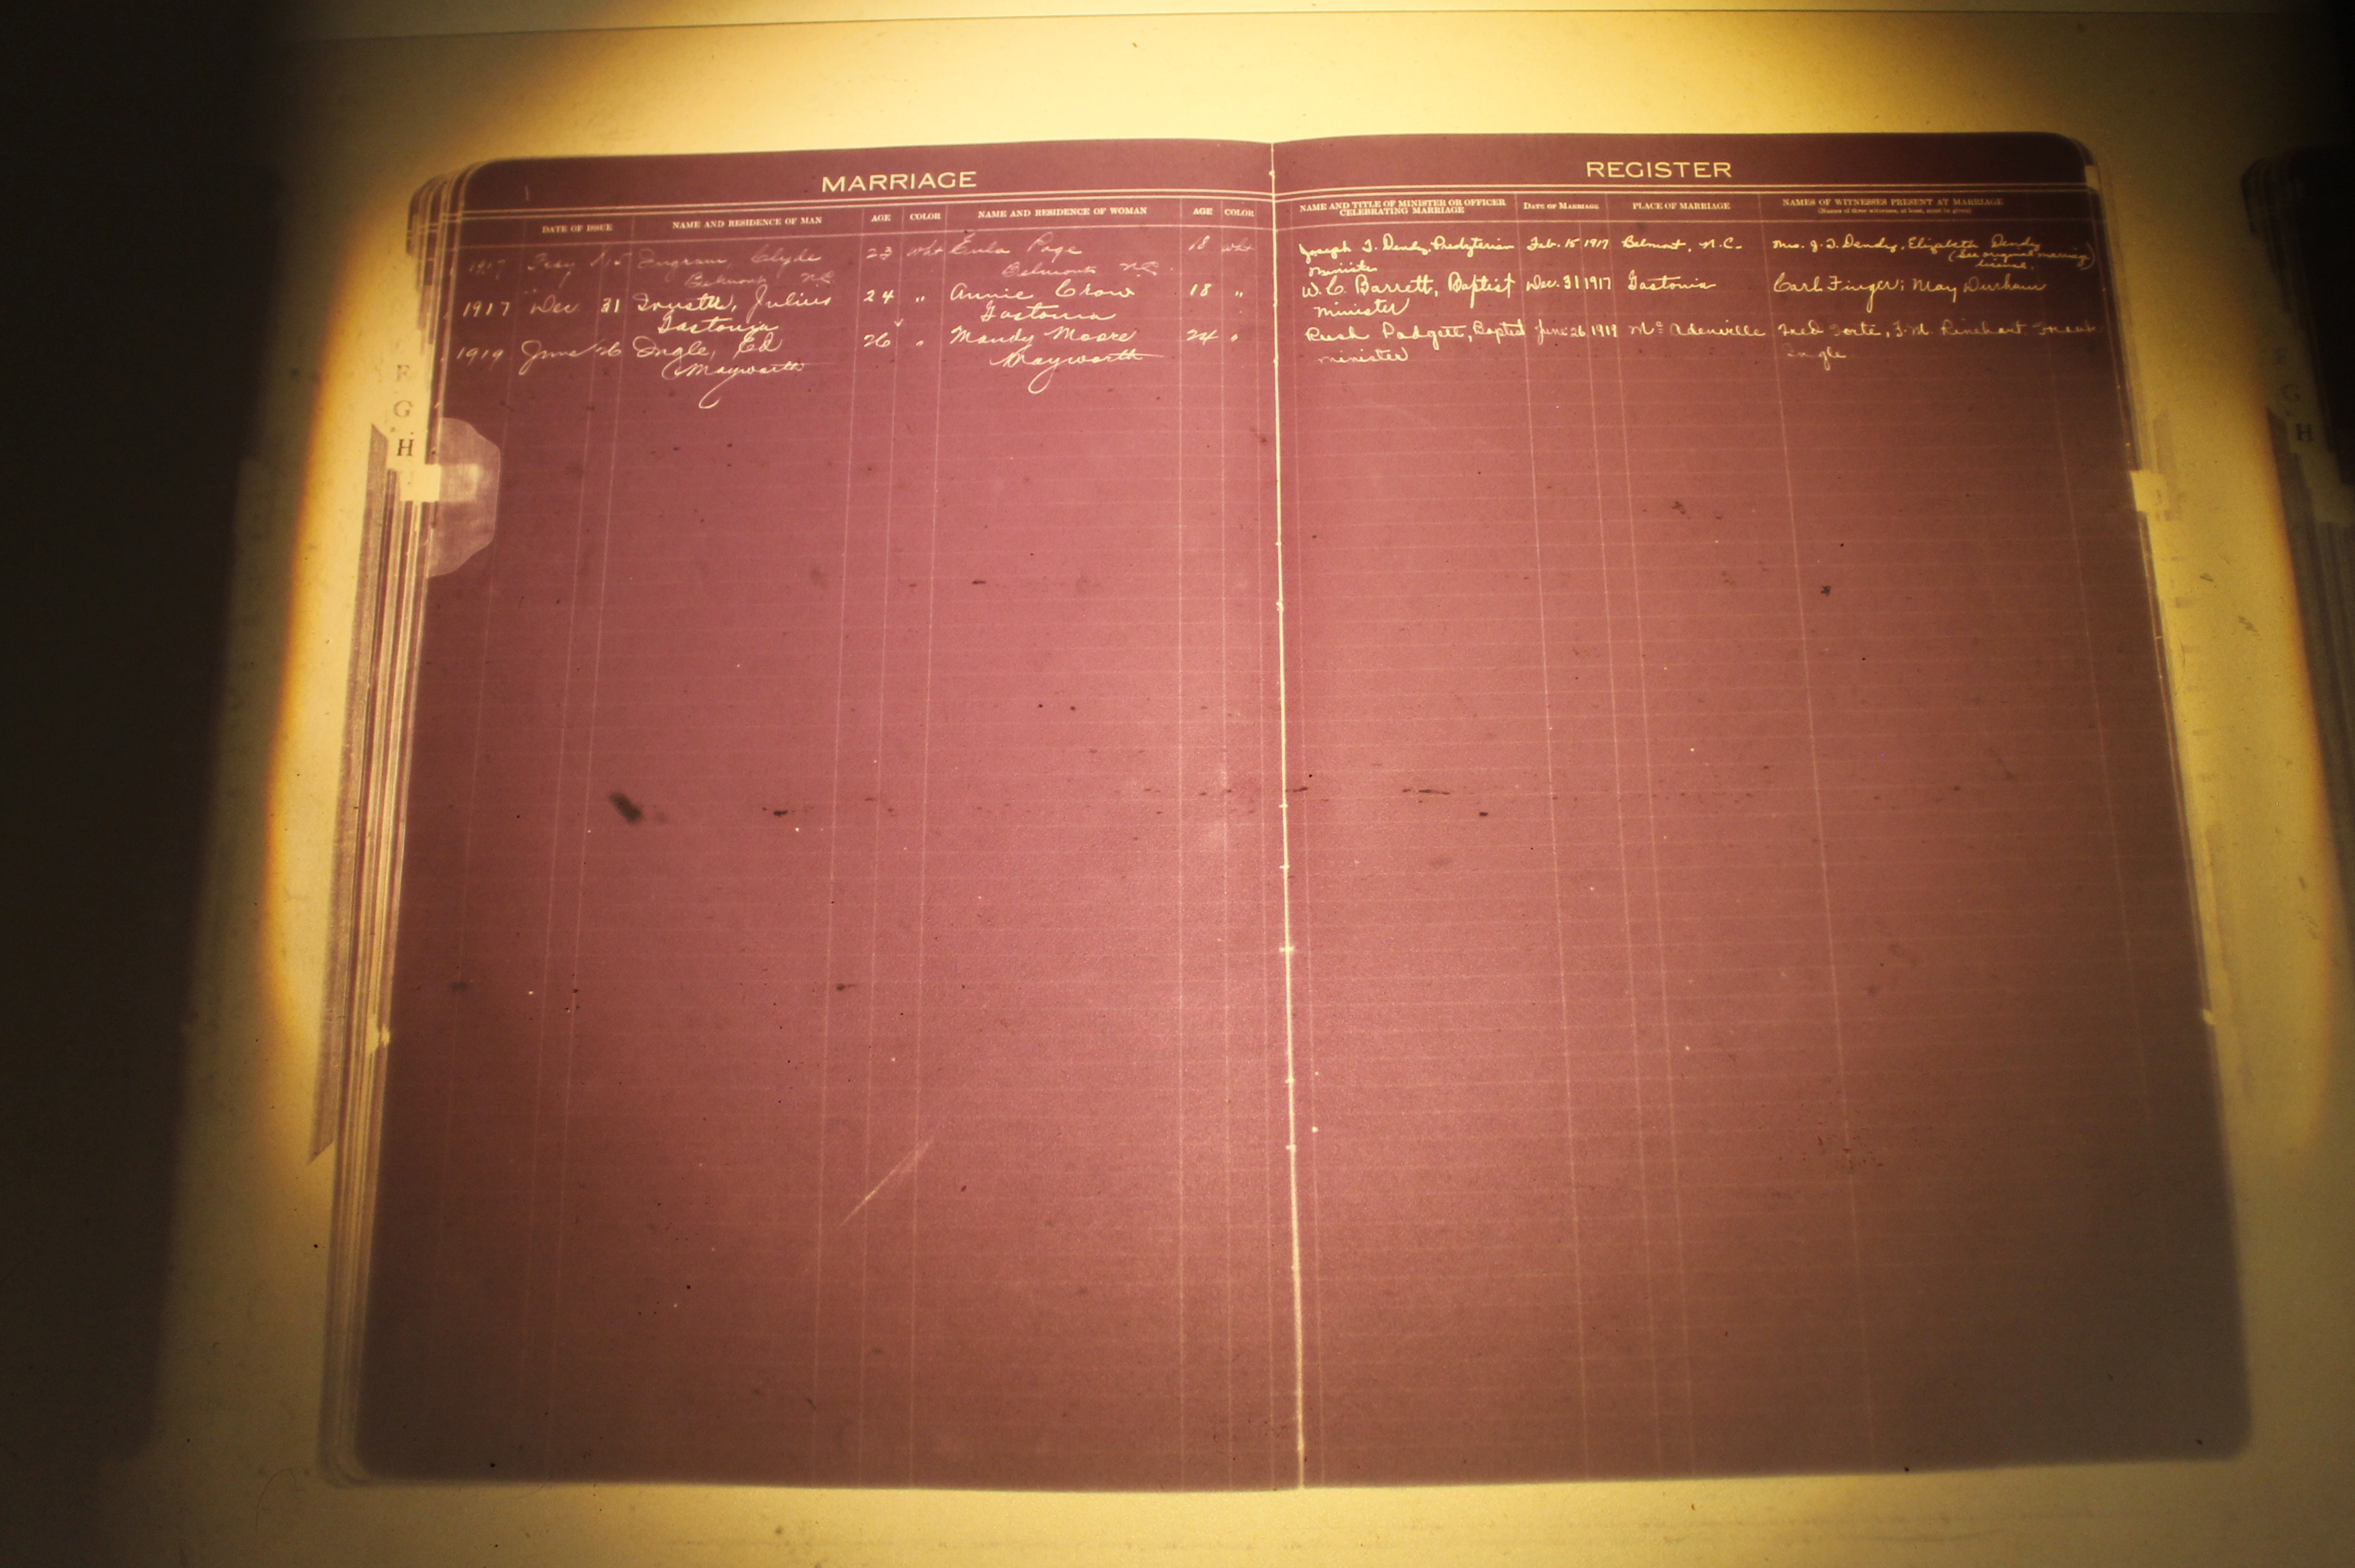 MARRIAGE
REGISTER
DATE OF ISSUE NAME AND RESIDENCE OF MAN AGE COLOR NAME AND RESIDENCE OF WOMAN AGE COLOR
NAME AND TITLE OF MINISTER OR OFFICER CELEBRATING MARRIAGE DATE OF MARRIAGE PLACE OF MARRIAGE NAMES OF WITNESSES PRESENT AT MARRIAGE
(Names of three witnesses, at least, must be given)
1917 15 Ingram, Clyde 23 wht Eula Page 18 wht Joseph T. Dendy, Presbyterian Feb. 15 1917 Belmont, N.C. Mrs. J. T. Dendy, Elizabeth Dendy
Belmont N.C. Belmont N.C. minister (See original marriage
license.)
1917 Dec 31 Julius 24 " Annie Crow 18 " W. C. Barrett, Baptist Dec. 31 1917 Gastonia Carl Finger; May Durham
Gastonia Gastonia minister
1919 June 26 Ingle, Ed 26 " Mandy Moore 24 " Rush Padgett, Baptist June 26, 1919 McAdenville Fred J. M. Rinehart
Mayworth Mayworth minister Ingle
F
G
H
G
H